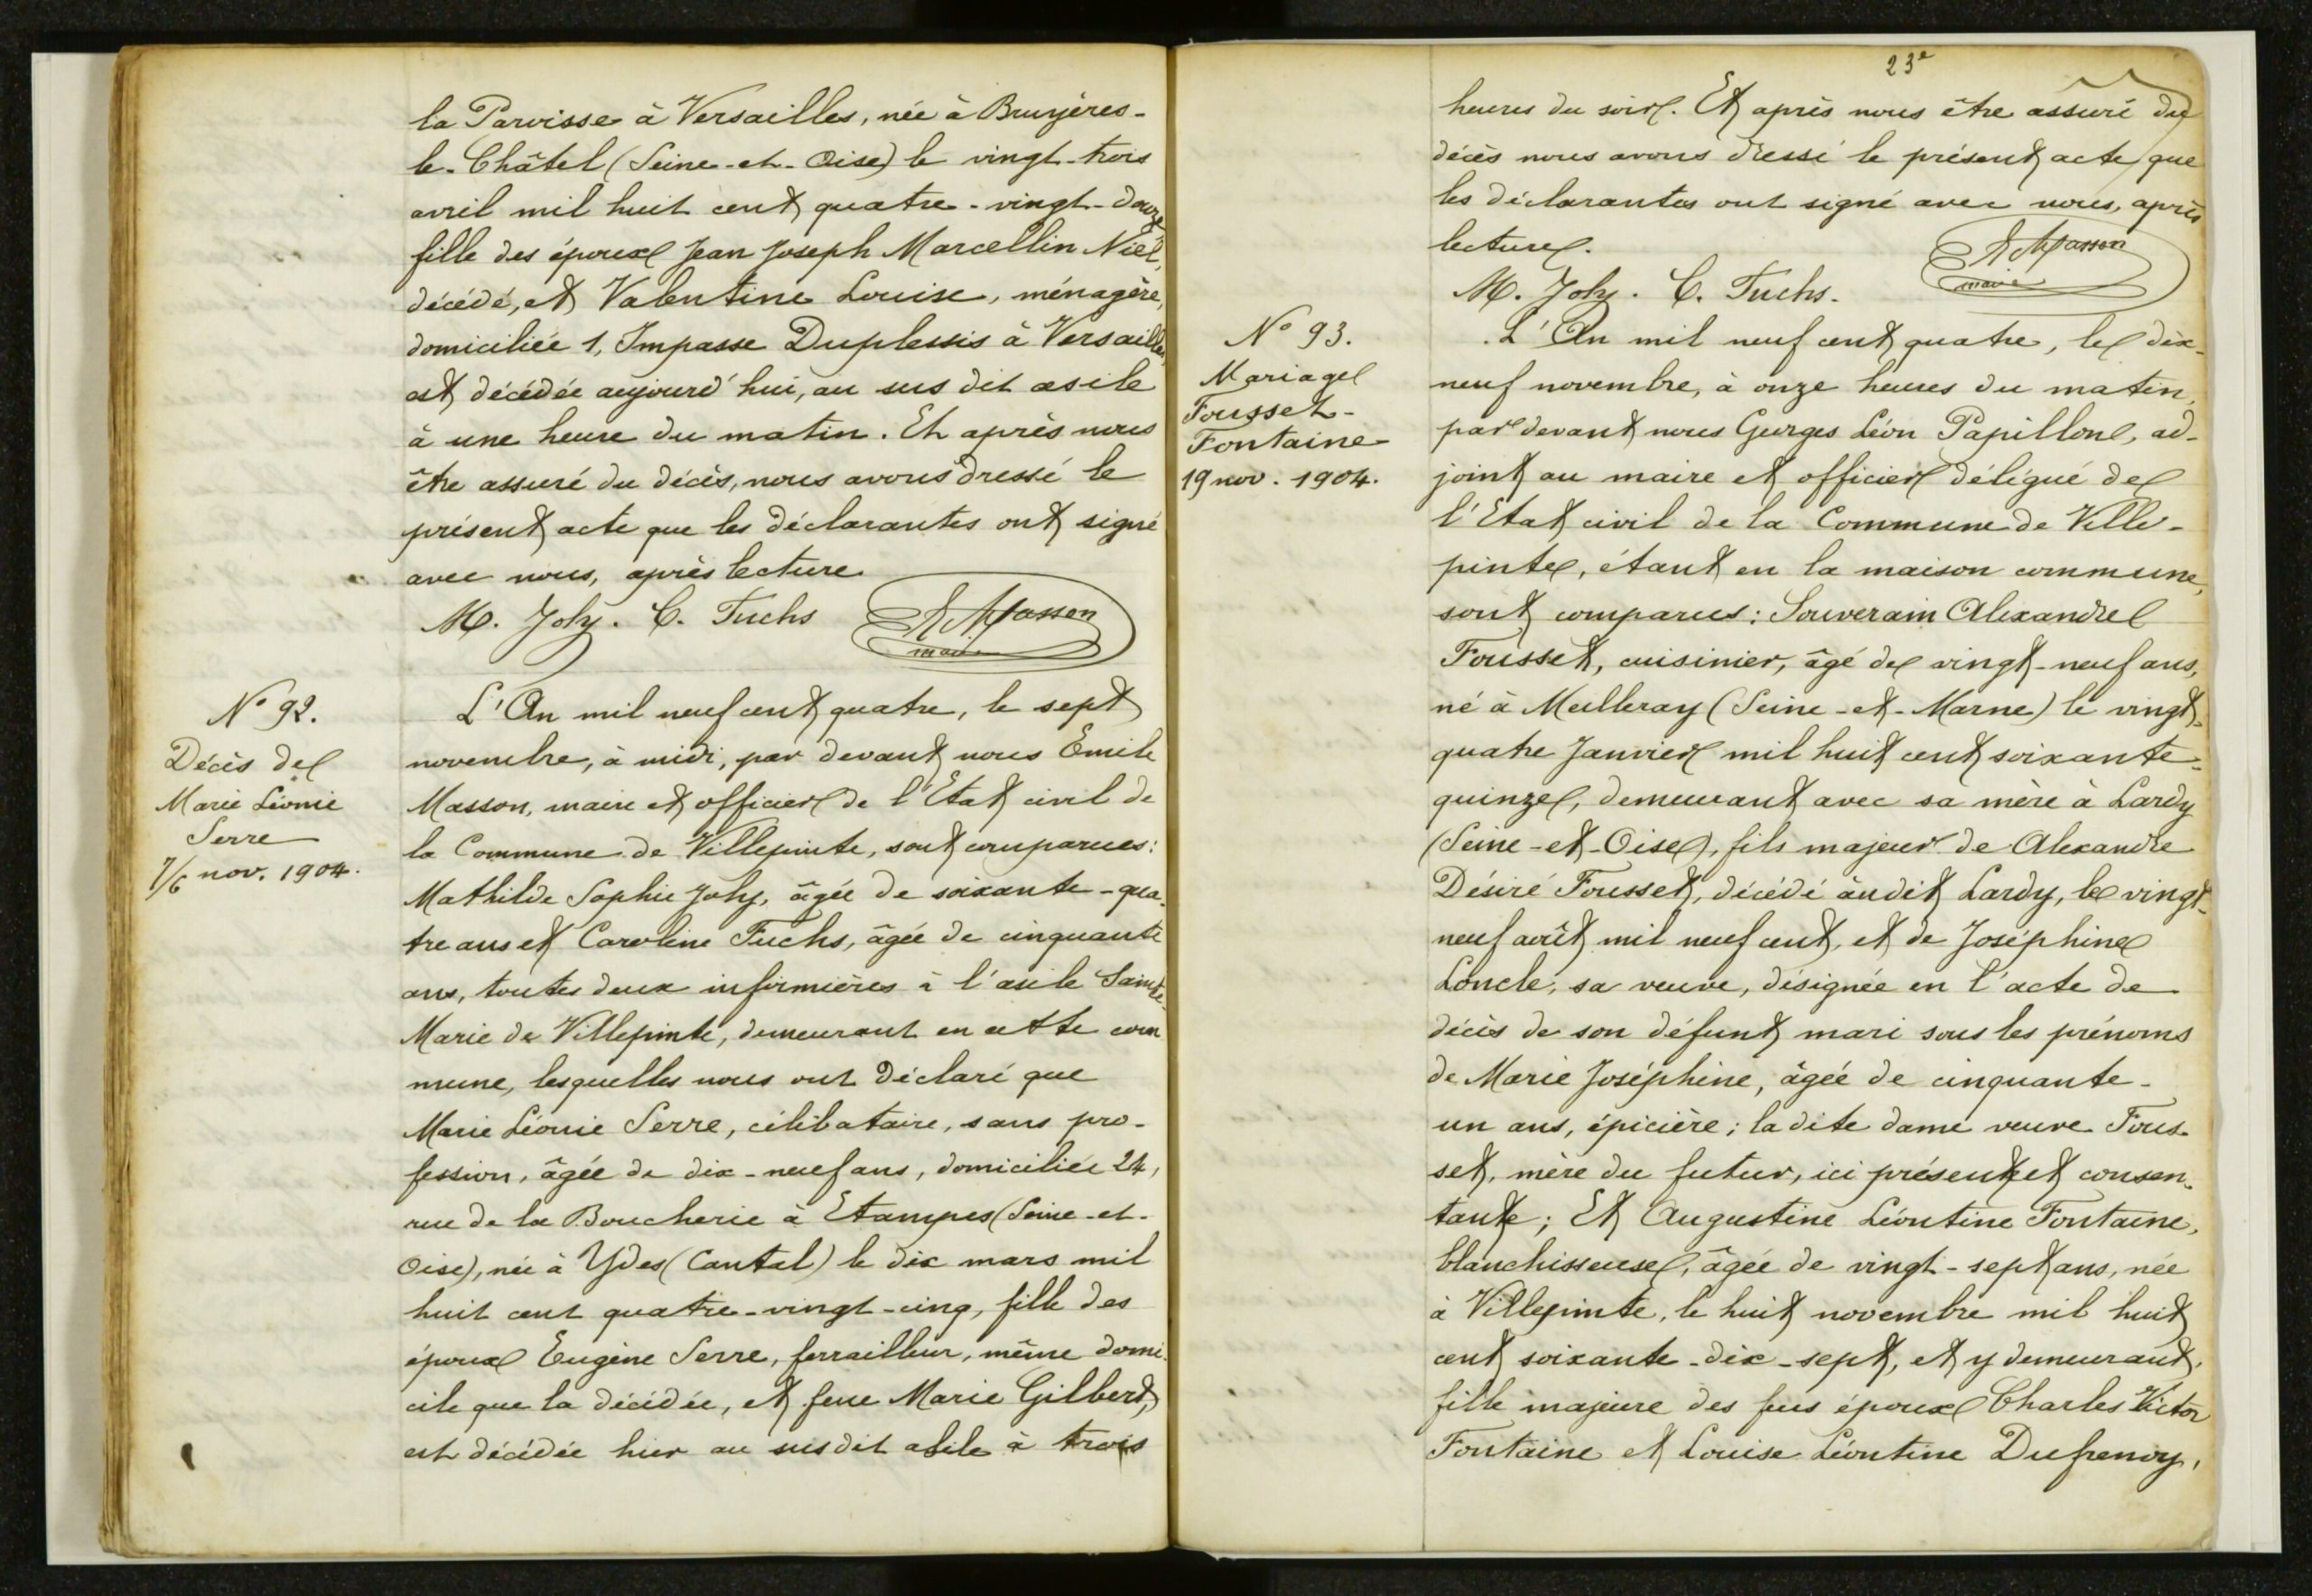 la Paroisse à Versailles, née à Bruyères-
le-Châtel (Seine-et-Oise) le vingt-trois
avril mil huit cent quatre-vingt-douze
fille des époux Jean Joseph Marcellin Niel,
décédé, et Valentine Louise, ménagère,
domiciliée 1, Impasse Duplessis à Versailles
est décédée aujourd'hui, au sus dit asile
à une heure du matin. Et après nous
être assuré du décès, nous avons dressé le
présent acte que les déclarantes ont signé
avec nous, après lecture
M. Joly. C. Fuchs E Masson
maire
N° 92.
Décès de
Marie Léonie
Serre
7/6 nov. 1904.
L'An mil neuf cent quatre, le sept
novembre, à midi, par devant nous Emile
Masson, maire et officier de l'Etat civil de
la Commune de Villepinte, sont comparues:
Mathilde Sophie Joly, âgée de soixante-qua-
tre ans et Caroline Fuchs, âgée de cinquante
ans, toutes deux infirmières à l'asile Sainte
Marie de Villepinte, demeurant en cette com
mune, lesquelles nous ont déclaré que
Marie Léonie Serre, célibataire, sans pro-
fession, âgée de dix-neuf ans, domiciliée 24,
rue de la Boucherie à Etampes (Seine-et-
Oise), née à Ydes (Cantal) le dix mars mil
huit cent quatre-vingt-cinq, fille des
époux Eugène Serre, ferrailleur, même domi-
cile que la décédée, et feue Marie Gilbert,
est décédée hier au susdit asile à trois
23e
heures du soir. Et après nous être assuré du
décès nous avons dressé le présent acte que
les déclarantes ont signé avec nous, après
lecture.
M. Joly. C. Fuchs. E Masson
maire
N° 93.
Mariage
Fousset-
Fontaine
19 nov. 1904.
L'An mil neuf cent quatre, le dix-
neuf novembre, à onze heures du matin,
par devant nous Georges Léon Papillon, ad-
joint au maire et officier délégué de
l'Etat civil de la Commune de Ville-
pinte, étant en la maison commune,
sont comparus: Souverain Alexandre
Fousset, cuisinier, âgé de vingt-neuf ans,
né à Meilleray (Seine-et-Marne) le vingt-
quatre Janvier mil huit cent soixante-
quinze, demeurant avec sa mère à Lardy
(Seine-et-Oise), fils majeur de Alexandre
Désiré Fousset, décédé audit Lardy, le vingt-
neuf août mil neuf cent, et de Joséphine
Loncle, sa veuve, désignée en l'acte de
décès de son défunt mari sous les prénoms
de Marie Joséphine, âgée de cinquante-
un ans, épicière; la dite dame veuve Fous-
set, mère du futur, ici présente et consen-
tante; Et Augustine Léontine Fontaine,
blanchisseuse, âgée de vingt-sept ans, née
à Villepinte, le huit novembre mil huit
cent soixante-dix-sept, et y demeurant,
fille majeure des feus époux Charles Victor
Fontaine et Louise Léontine Dufrenoy,